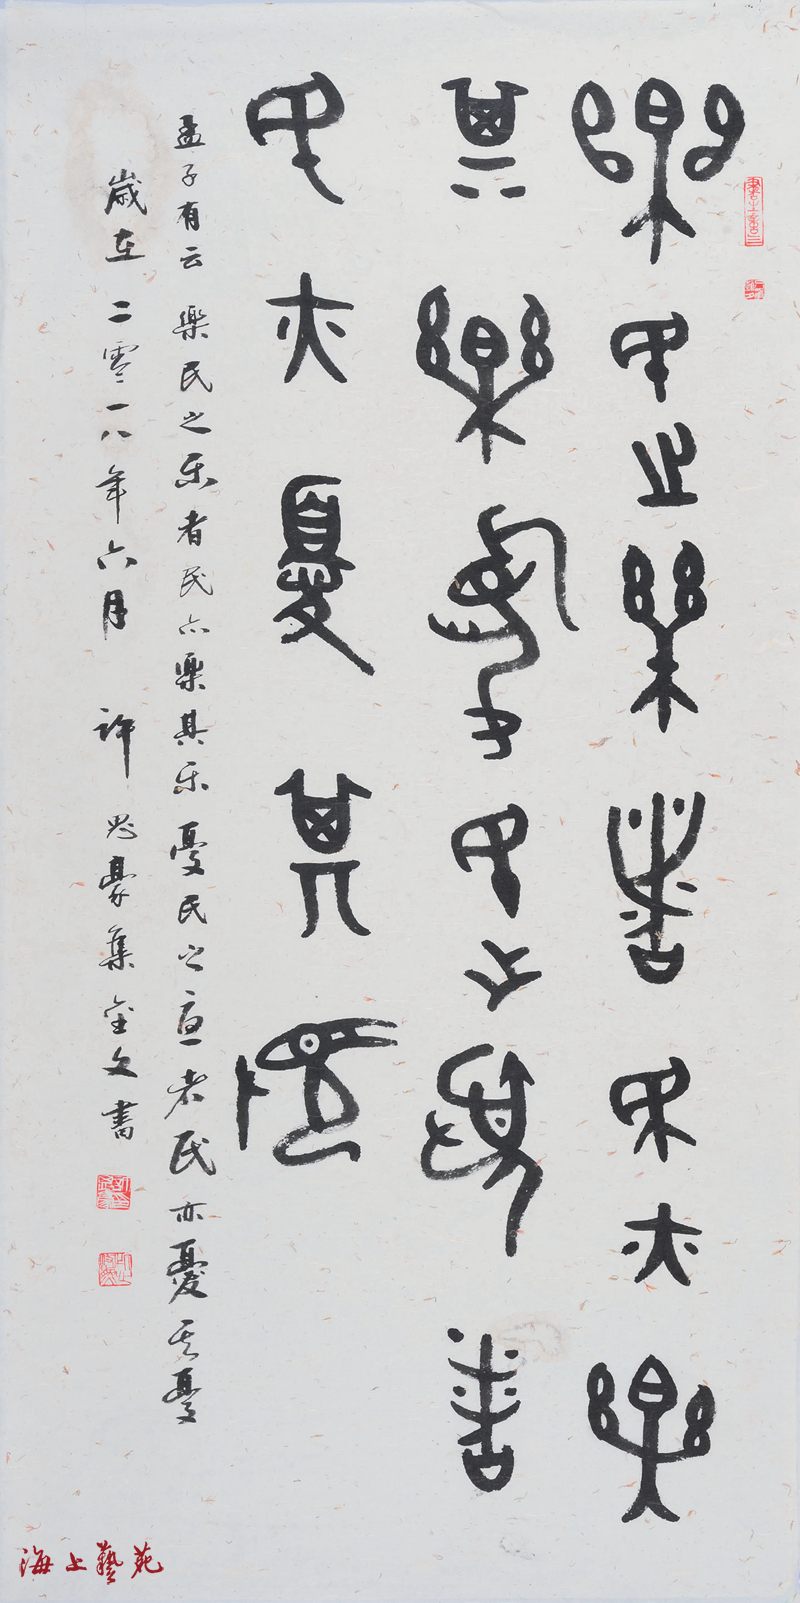 樂民之樂者民亦樂
其樂憂民之憂者
民亦憂其憂
孟子有云 樂民之乐者民亦樂其乐憂民之憂者民亦憂其憂
歲在二零一八年六月 許思豪集金文書
海上藝苑